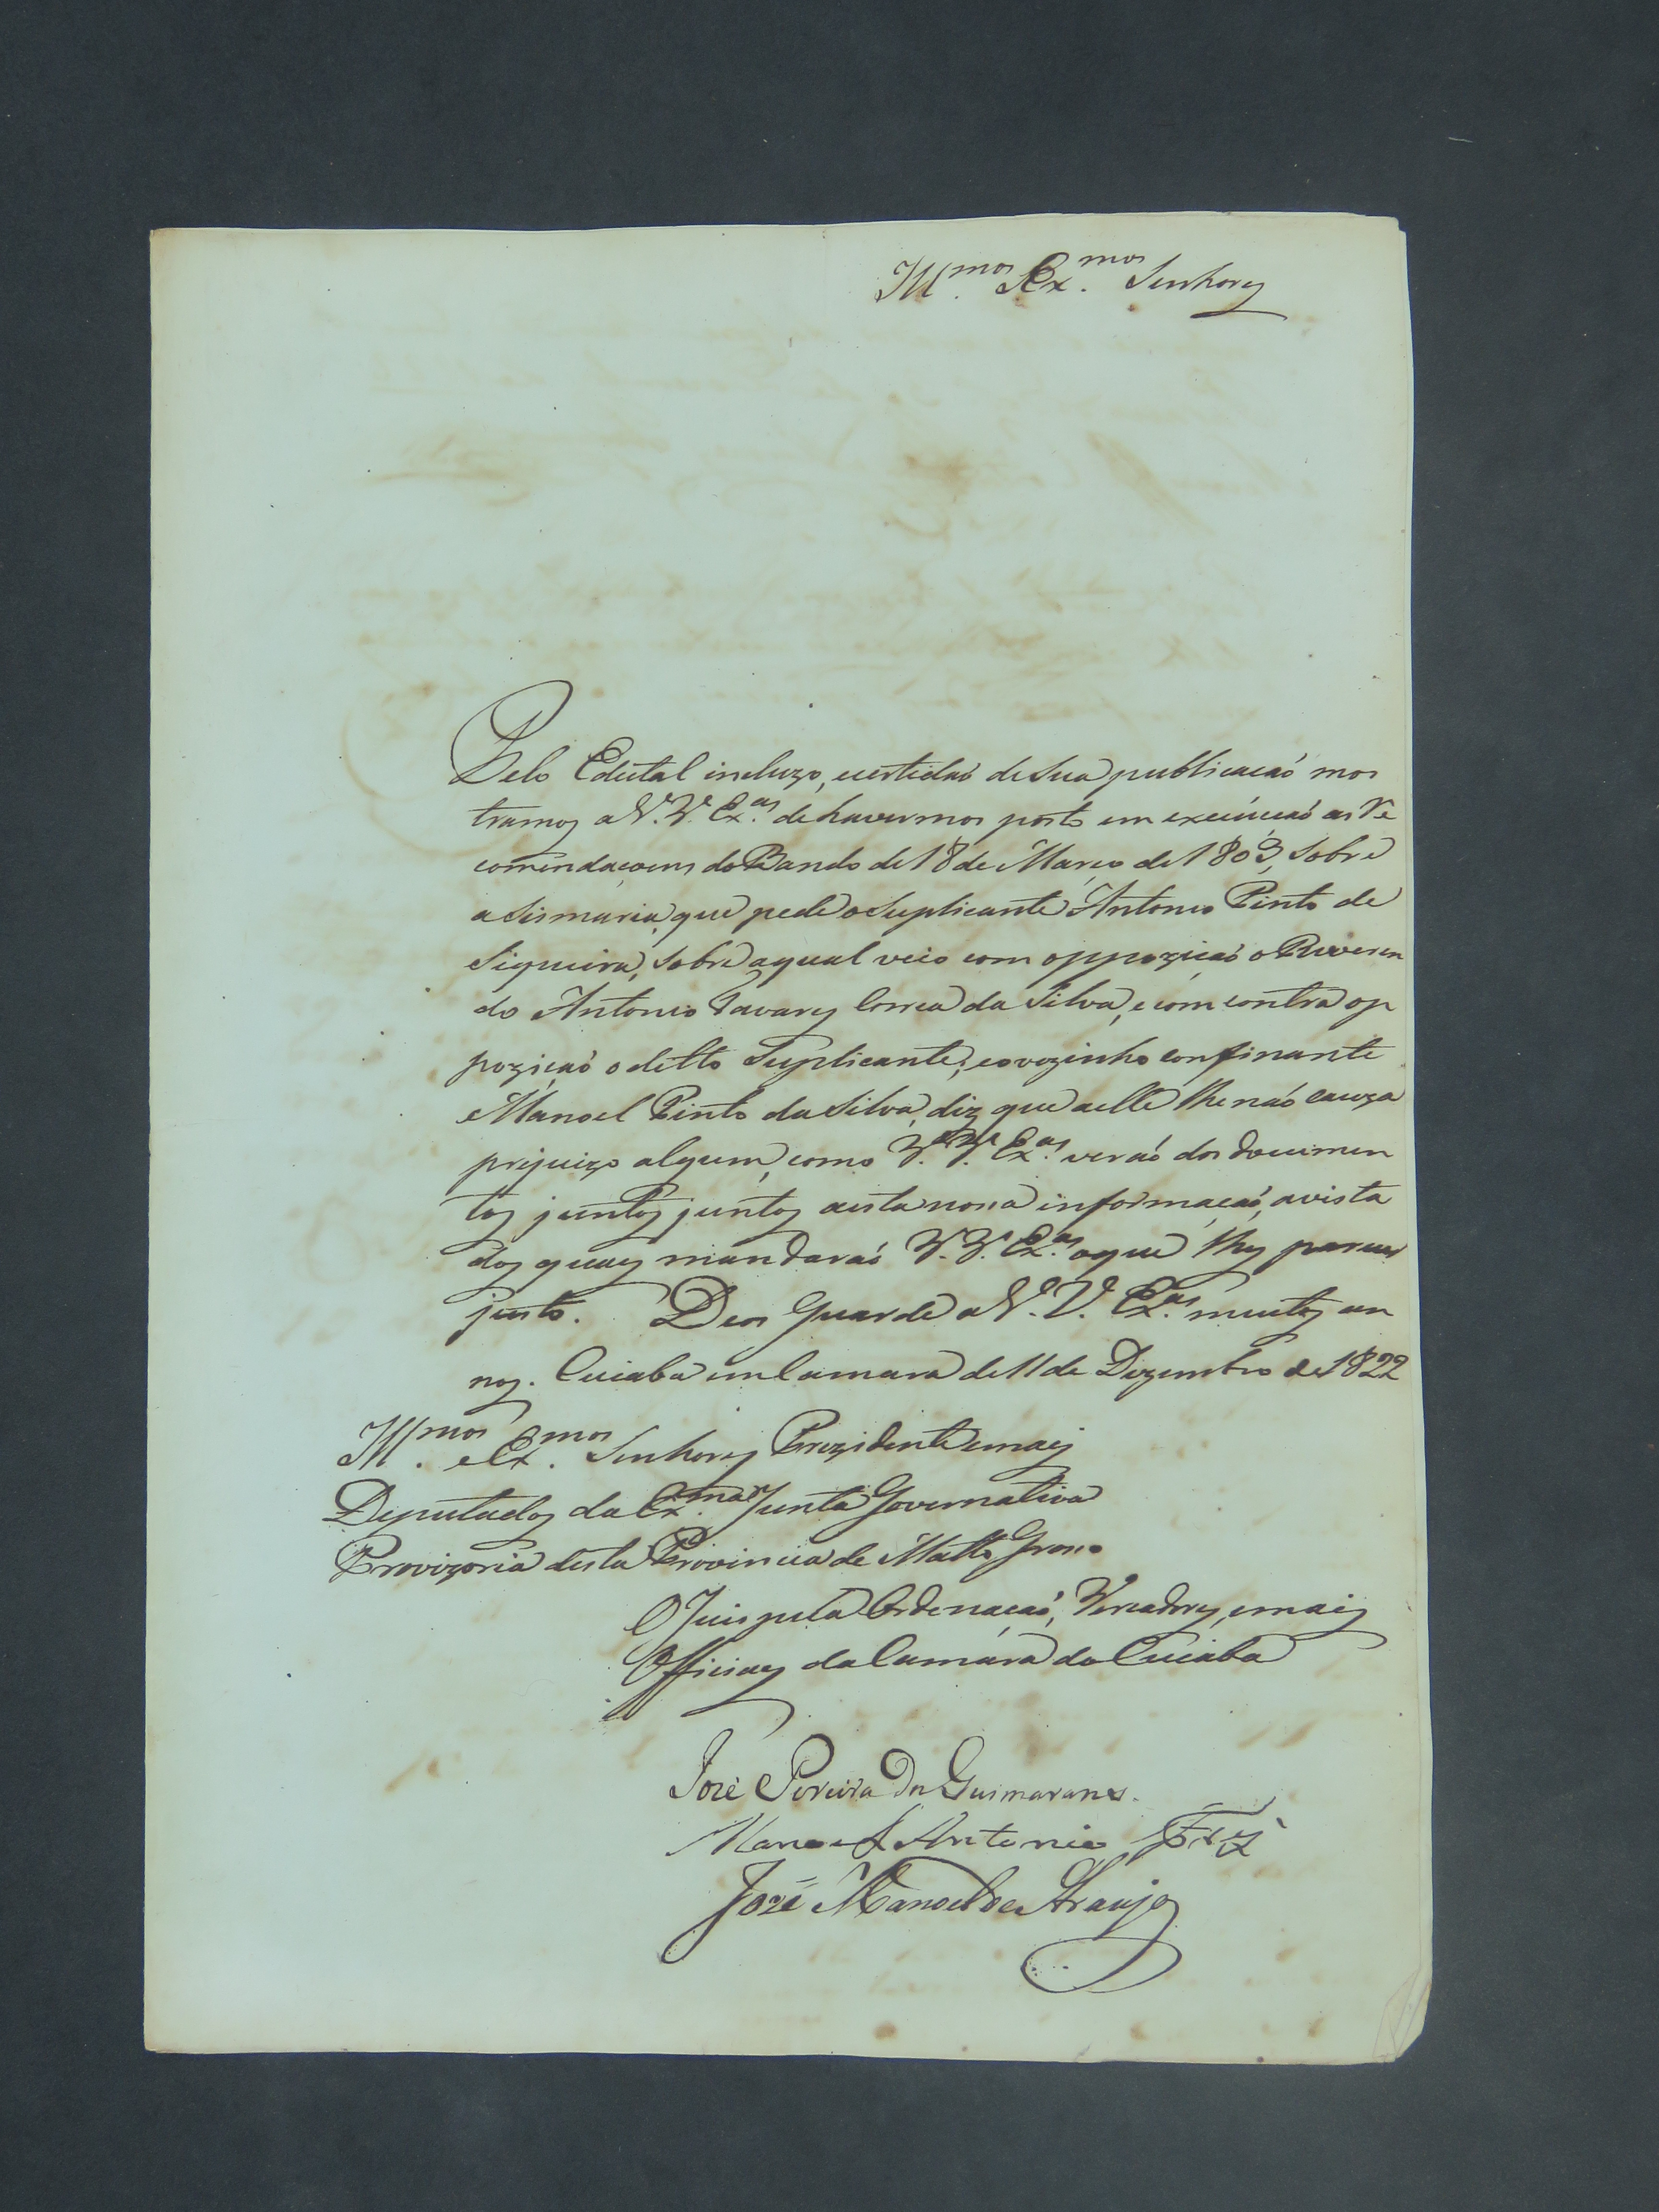 Ill.mos Ex.mos Senhores
Pelo Edital incluzo, certidaõ de sua publicacaõ mos
tramos a V.V. Ex.as de havermos posto em execucaõ as Re
comendaçoens do Bando de 18 de Março de 1803, sobre
a Sismaria, que pede o Suplicante Antonio Pinto de
Siqueira, sobre a qual veio com oppozicaõ o Reveren
do Antonio Tavares Correa da Silva, e com contra op
poziçaõ o ditto Suplicante; e o vezinho confinante
Manoel Pinto da Silva, diz que a elle lhe naõ cauza
prijuizo algum, como V.V. Ex.as veraõ dos documen
tos juntos juntos a esta nossa informaçaõ, a vista
dos quaes mandaraõ V.V. Ex.as o que lhes parecer
justo. Deos Guarde a V.V. Ex.as muitos an
nos. Cuiaba em Camara de 11 de Dezembro de 1822
Ill.mos e Ex.mos Senhores Prezidente e mais
Deputados da Ex.ma Junta Governativa
Provizoria desta Provincia de Matto Grosso
O Juis pela Ordenaçaõ, Vereadores, e mais
Officiaes da Camara do Cuiaba
José Pereira Dos Guimaranes.
Manoel Antonio
José Manoel de Araujo